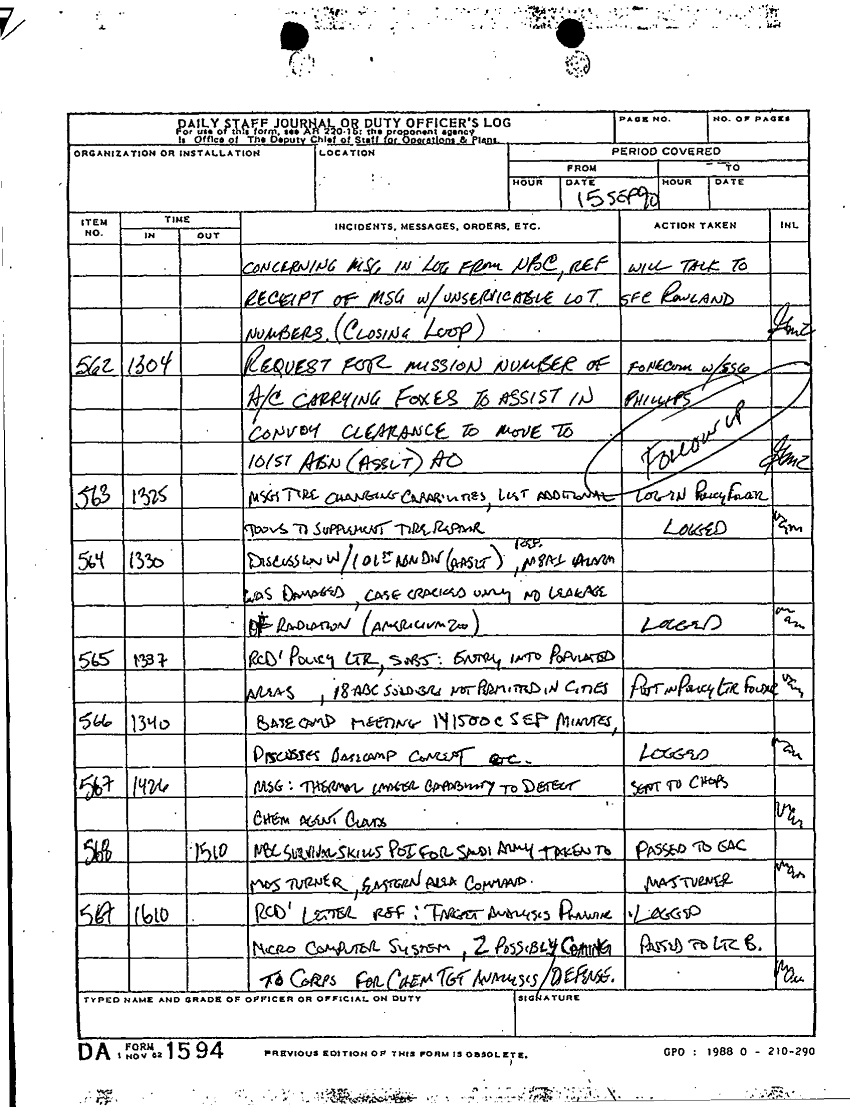 DAILY STAFF JOURNAL OR DUTY OFFICER'S LOG
For use of this form, see AR 220-15; the proponent agency
is Office of The Deputy Chief of Staff for Operations & Plans.
PAGE NO.
NO. OF PAGES
ORGANIZATION OR INSTALLATION
LOCATION
PERIOD COVERED
FROM
TO
HOUR
DATE
HOUR
DATE
15 SEP 90
ITEM NO.
TIME
IN
OUT
INCIDENTS, MESSAGES, ORDERS, ETC.
ACTION TAKEN
INL
CONCERNING MSG IN LOG FROM NBC, REF WILL TALK TO
RECEIPT OF MSG W/UNSERVICABLE LOT SFC ROWLAND
NUMBERS. (CLOSING LOOP)
562 1304 REQUEST FOR MISSION NUMBER OF FONECOM W/SSG
A/C CARRYING FOXES TO ASSIST IN PHILLIPS
CONVOY CLEARANCE TO MOVE TO FOLLOW UP
101ST ABN (ASSLT) AO
563 1325 MSGS TIRE CHANGING CAPABILITIES, LIST ADDITIONAL LOG IN Policy Folder
TOOLS TO SUPPLEMENT TIRE REPAIR LOGGED
564 1330 DISCUSSION W/101ST ABN DIV (AASLT), REF. M8A1 ALARM
WAS DAMAGED, CASE CRACKED ONLY NO LEAKAGE
OF RADIATION (AMERICIUM) LOGGED
565 1337 RCD' POLICY LTR, SUBJ: ENTRY INTO POPULATED
AREAS, 18 ABC SOLDIERS NOT PERMITTED IN CITIES Put in Policy Ltr Folder
566 1340 BASECAMP MEETING 141500C SEP MINUTES,
DISCUSSES BASECAMP CONCEPT ETC. LOGGED
567 1426 MSG: THERMAL IMAGER CAPABILITY TO DETECT SENT TO CHOPS
CHEM AGENT CLOUDS
568 1510 NBC SURVIVAL SKILLS POI FOR SAUDI ARMY TAKEN TO PASSED TO EAC
MAS TURNER, EASTERN AREA COMMAND. MAS TURNER
567 1610 RCD' LETTER REF: TARGET ANALYSIS PLANNING LOGGED
MICRO COMPUTER SYSTEM, 2 POSSIBLY COMING PASSED TO LTC B.
TO CORPS FOR CHEM TGT ANALYSIS/DEFENSE.
TYPED NAME AND GRADE OF OFFICER OR OFFICIAL ON DUTY
SIGNATURE
DA FORM 1 NOV 62 1594
PREVIOUS EDITION OF THIS FORM IS OBSOLETE.
GPO : 1988 O - 210-290